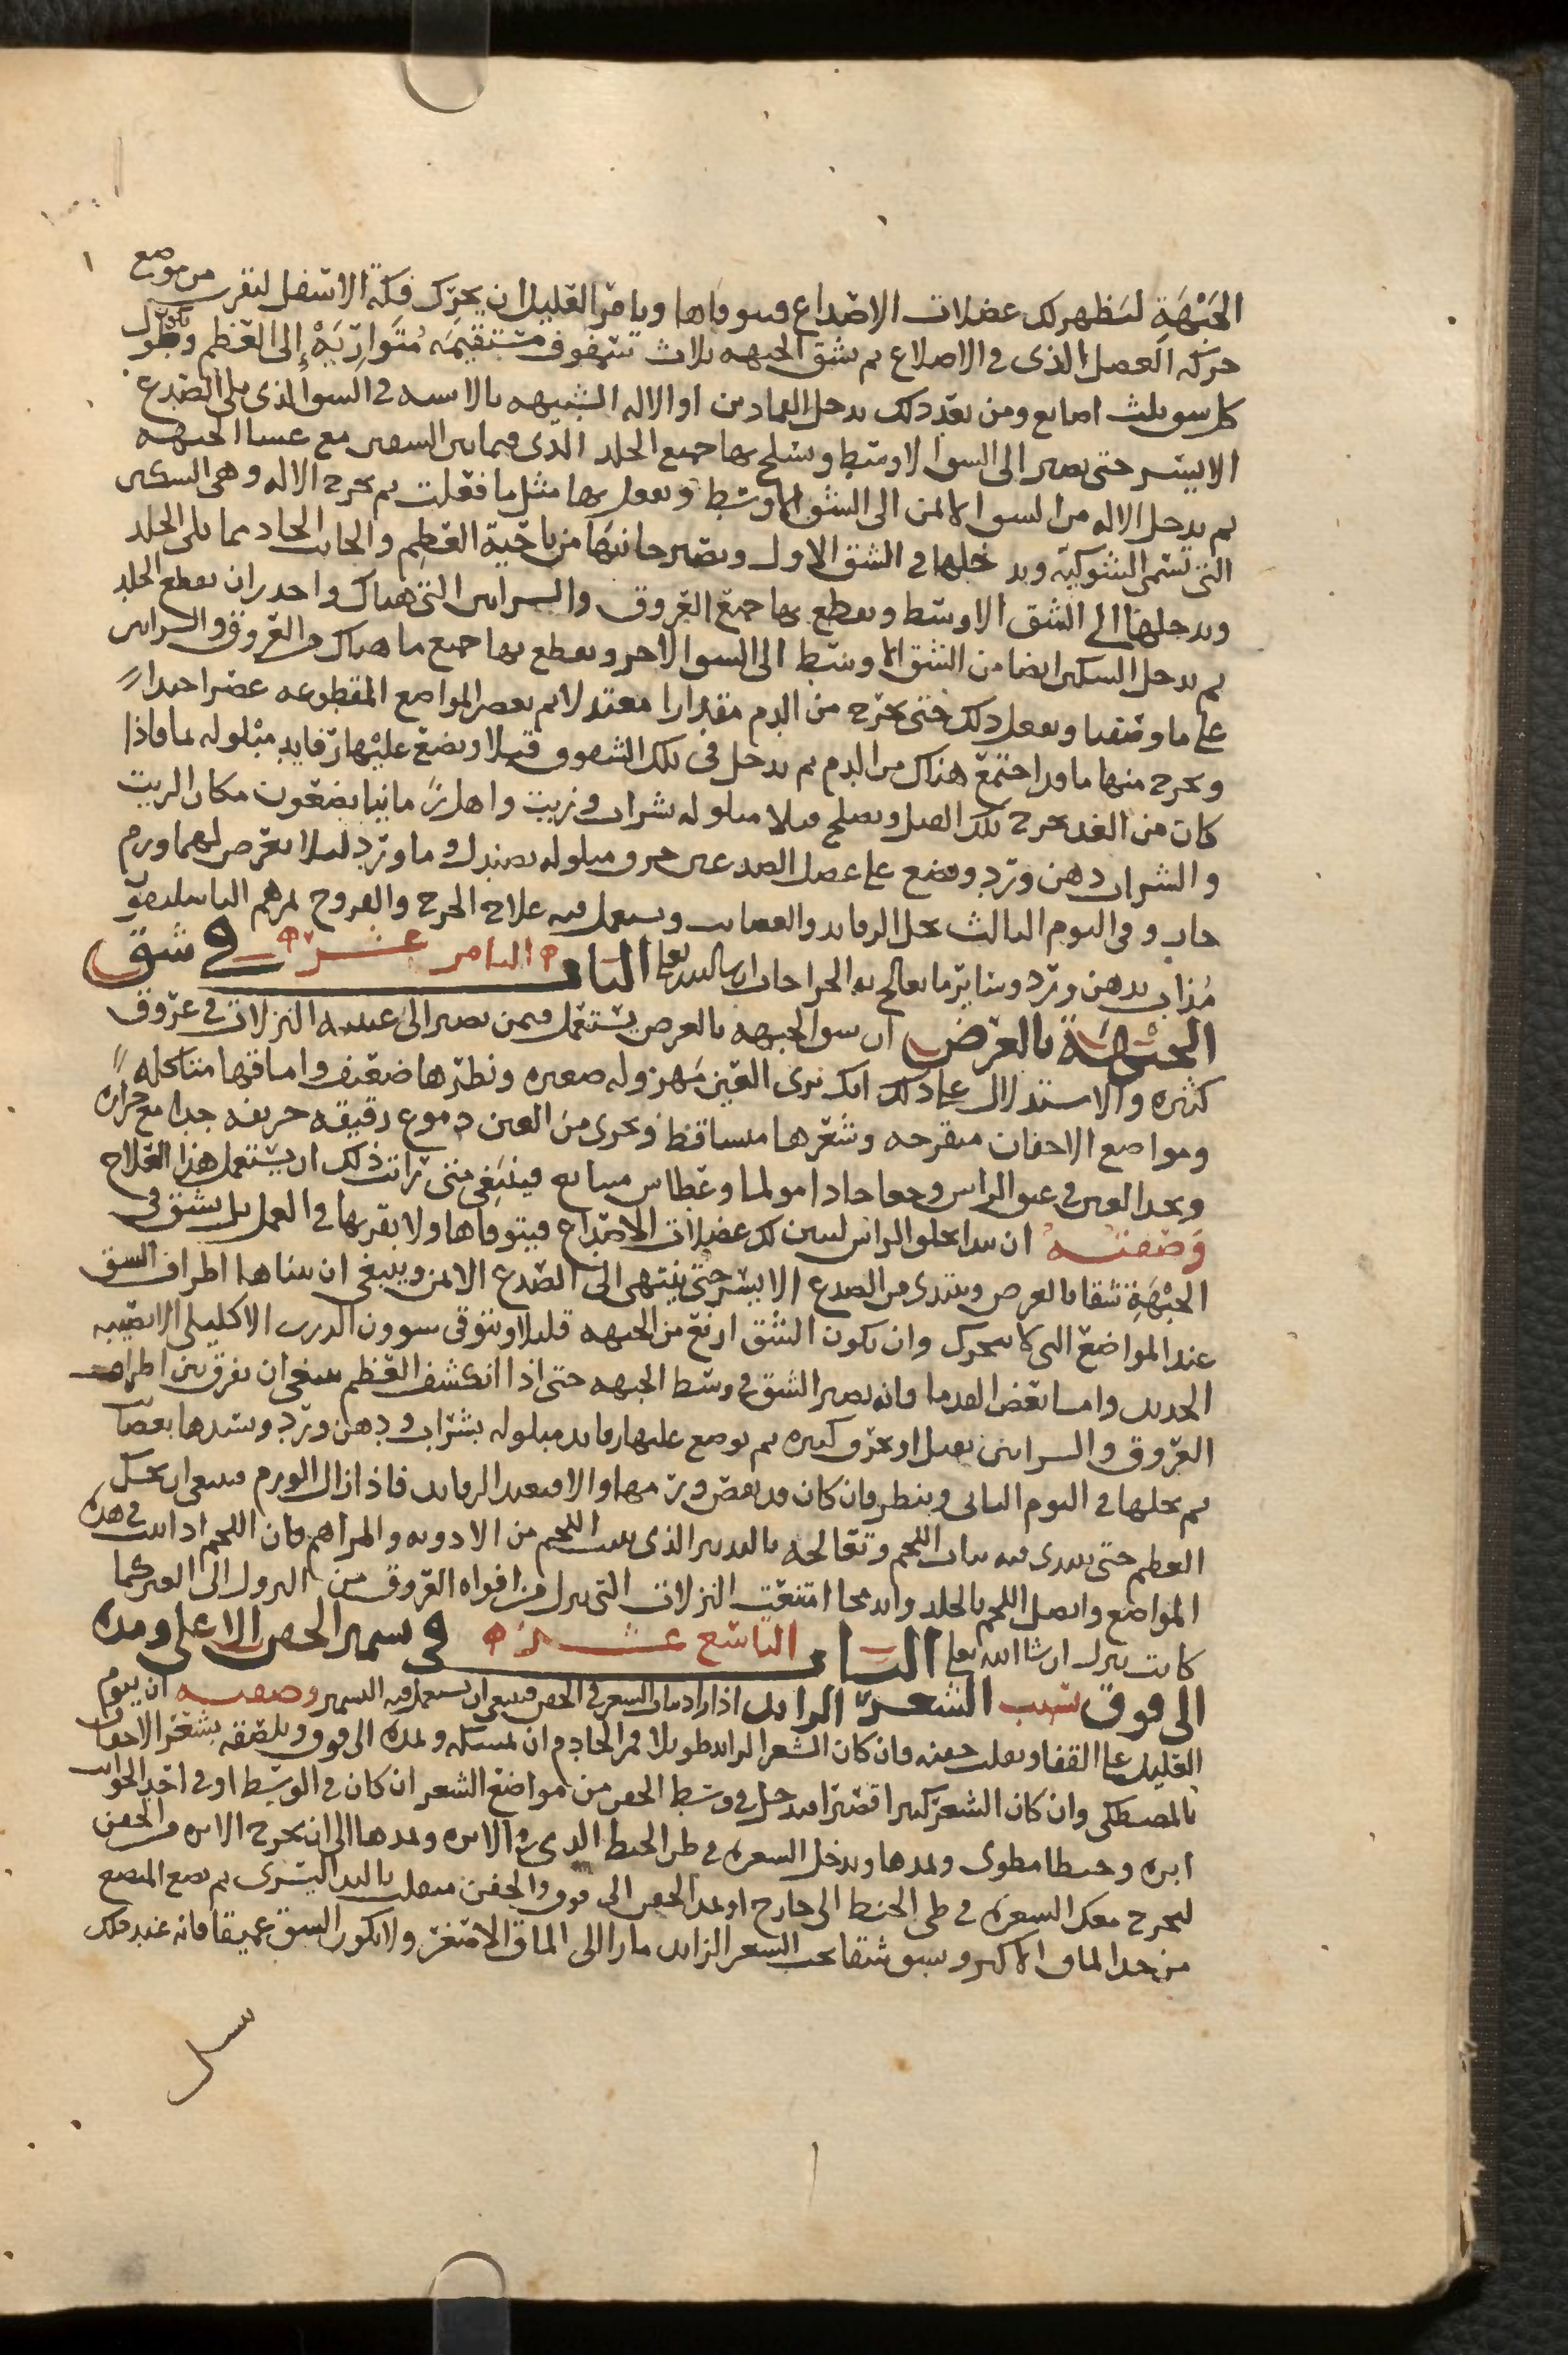 الجَبْهَةِ لتظهر لك عضلات الاصداع فتتوقاها ويامر العليل ان يحرّك فكه الاسفل لتقرب من موضع
حركه العضل الذى فى الاصداع ثم شق الجبهه ثلاث شقوق مستقيمَه مُتَوازيَهْ إلى العظم وطول
كل شق ثلث اصابع ومن بعد ذلك يدخل العمادين او الاله الشبيهه بالاسه فى الشق الذى يلى الصدع
الايسر حتى يصير الى الشق الاوسط ويسلخ بها جميع الجلد الذى فيما بين الشقين مع غشا الجبهه
ثم يدخل الاله من الشق الايمن الى الشق الاوسط ويفعل بها مثل ما فعلت ثم يخرج الاله وهى السكين
التى تسمى الشوكيّه ويدخلها فى الشق الاول ويصير جانبها من ناحية العظم والجانب الحاد مما يلى الجلد
ويدخلها الى الشق الاوسط ويقطع بها جميع العروق والشرايين التى هناك واحذر ان يقطع الجلد
ثم يدخل السكين ايضا من الشق الاوسط الى الشق الاخر ويقطع بها جميع ما هناك من العروق والشرايين
على ما وصفنا ويفعل ذلك حتى يخرج من الدم مقدارا معتدلا ثم يعصر المواضع المقطوعه عصرا جيدا
ويخرج منها ما قد اجتمع هناك من الدم ثم يدخل فى تلك الشقوق فتيلا ويضع عليها رفايد مبلوله بما فاذا
كان من الغد يخرج تلك الفتل ويصلح فتلا مبلوله بشراب وزيت واهل زماننا يضعون مكان الزيت
والشراب دهن ورد ويضع على عضل الصدغين خرق مبلوله بصندل وما ورد ليلا يعرض لهما ورم
حار وفى اليوم الثالث يحل الرفايد والعصايب ويستعمل فيه علاج الجرح والقروح بمرهم الباسليقون
مذاب بدهن ورد وساير ما يعالج به الجراحات ان شا الله تعالى الباب الثامن عشر فى شق
الجبهة بالعرض ان شق الجبهه بالعرض يستعمل فيمن يصير الى عينيه النزلات فى عروق
كثيره والاستدلال على ذلك انك ترى العين مهزوله صغيره ونظرها ضعيف واماقها متاكله
ومواضع الاجفان متقرحه وشعرها متساقط ويجرى من العين دموع رقيقه حريفه جدا مع حراره
ويجد العليل فى عمق الراس وجعا حادا مولما وعطاس متتابع فينبغى متى رايت ذلك ان يستعمل هذا العلاج
وصفته ان يبدا بحلق الراس لتبين لك عضلات الاصداع فيتوقاها ولا يقربها فى العمل بل يشق فى
الجَبْهَةِ شقا بالعرض ويبتدى من الصدع الايسر حتى ينتهى الى الصدع الايمن وينبغى ان يتناها اطراف الشق
عند المواضع التى لا تتحرك وان يكون الشق ارفع من الجبهه قليلا ويتوقى شوون الدرز الاكليلى الا يصيبه
الحديد واما بعض القدما فانه يصير الشق فى وسط الجبهه حتى اذا انكشف العظم ينبغى ان يفرق بين اطراف
العروق والشرايين بفتل او بخرق كثيره ثم يوضع عليها رفايد مبلوله بشراب ودهن ورد ويشدها بعصاب
ثم يحلها فى اليوم الثانى وينظر فان كان قد نقص ورمها والا فيعيد الرفايد فاذا زال الورم فينبغى ان يحك
العظم حتى يبتدى فيه نبات اللحم وتعالجه بالتدبير الذى ينبت اللحم من الادويه والمراهم فان اللحم اذا نبت فى هذه
المواضع واتصل اللحم بالجلد واندمجا امتنعت النزلات التى تنزل من افواه العروق من النزول الى العين كما
كانت تنزل ان شا الله تعالى الباب التاسع عشر فى تشمير الجفن الاعلى ومده
الى فوق بسبب الشعر الزايد اذا اردت ان الشعر فى الجفن فينبغى ان يستعمل فيه التشمير وصفته ان ينوم
العليل على القفا ويقلب جفنه فان كان الشعر الزايد طويلا فمر الخادم ان يمسكه ويمده الى فوق ويلصقه بشعر الاجفان
بالمصطكى وان كان الشعر كثيرا قصيرا فيدخل فى وسط الجفن من مواضع الشعر ان كان فى الوسط او فى احد الجوانب
ابره وخيطا مطوى ويمدها ويدخل الشعره فى طى الخيط الذى فى الابره ويمدها الى ان يخرج الابره من الجفن
ليخرج معك الشعره فى طى الخيط الى خارج او يمد الجفن الى فوق والجفن منقلب باليد اليسرى ثم يضع المبضع
من حد الماق الاكبر ويشق شقا تحت الشعر الزايد مارا الى الماق الاصغر ولا يكون الشق عميقا فانه عند ذلك